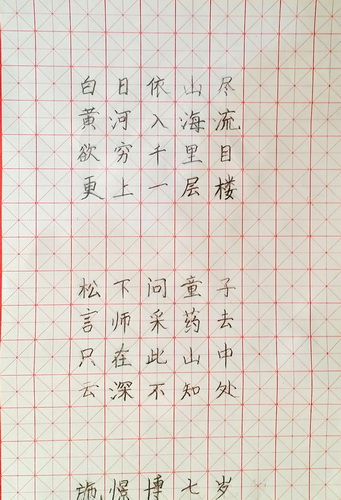 白日依山尽
黄河入海流
欲穷千里目
更上一层楼
松下问童子
言师采药去
只在此山中
云深不知处
施憬博七岁